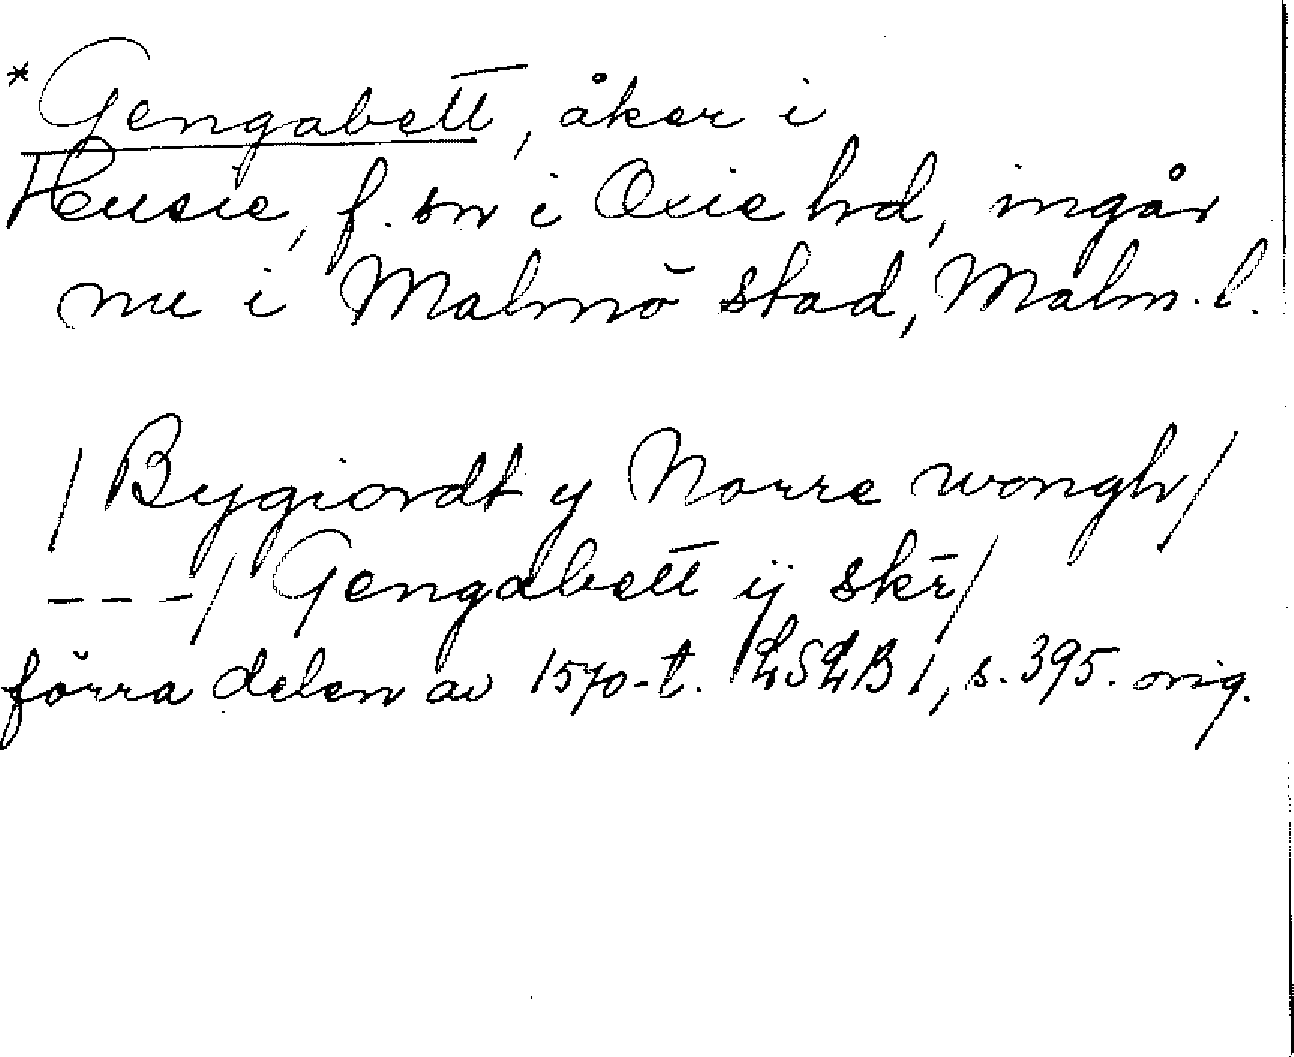 *Gengabett, åker i
Husie, f. sn i Oxie hd, ingår
nu i Malmö stad, Malm. l.
/Bygiordt y Norre wongh/
---/Gengabett ij skr̄/
förra delen av 1570-t. LSLB 1, s. 395. orig.